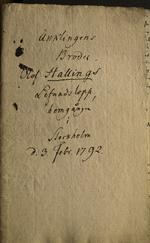 Ynklingens
Brodes
Olof Hallings
Lefnads lopp,
hemgången
i
Stockholm
d. 3 Febr. 1792.